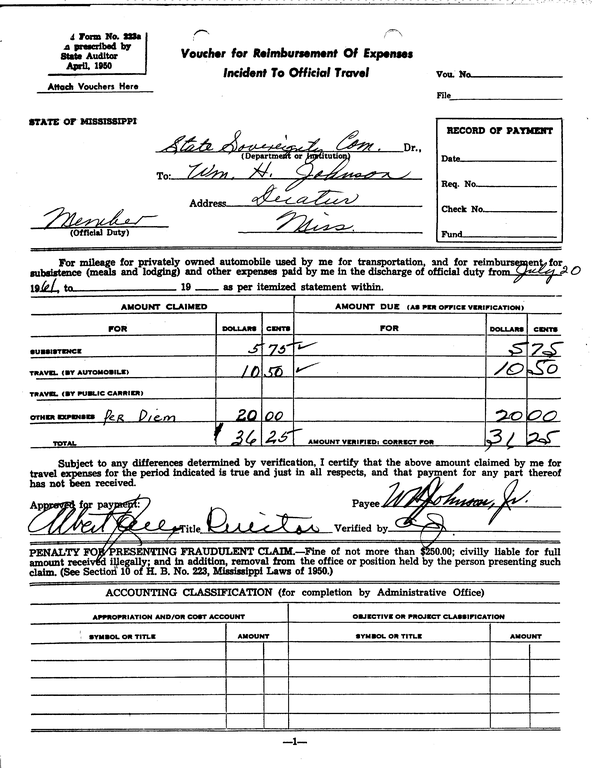 Form No. 223a
prescribed by
State Auditor
April, 1950
Attach Vouchers Here
Voucher for Reimbursement Of Expenses
Incident To Official Travel
Vou. No.
File
STATE OF MISSISSIPPI
State Sovereignty Com. Dr.,
(Department or Institution)
To: Wm. H. Johnson
Address Decatur
Miss.
Member
(Official Duty)
RECORD OF PAYMENT
Date
Req. No.
Check No.
Fund
For mileage for privately owned automobile used by me for transportation, and for reimbursement for
subsistence (meals and lodging) and other expenses paid by me in the discharge of official duty from July 20
1961, to 19 as per itemized statement within.
AMOUNT CLAIMED AMOUNT DUE (AS PER OFFICE VERIFICATION)
FOR DOLLARS CENTS FOR DOLLARS CENTS
SUBSISTENCE 5 75 ✓ 5 75
TRAVEL (BY AUTOMOBILE) 10 50 ✓ 10 50
TRAVEL (BY PUBLIC CARRIER)
OTHER EXPENSES Per Diem 20 00 20 00
TOTAL $ 36 25 AMOUNT VERIFIED; CORRECT FOR 31 25
Subject to any differences determined by verification, I certify that the above amount claimed by me for
travel expenses for the period indicated is true and just in all respects, and that payment for any part thereof
has not been received.
Approved for payment: Payee W H Johnson, Jr.
Albert Title Director Verified by
PENALTY FOR PRESENTING FRAUDULENT CLAIM.—Fine of not more than $250.00; civilly liable for full
amount received illegally; and in addition, removal from the office or position held by the person presenting such
claim. (See Section 10 of H. B. No. 223, Mississippi Laws of 1950.)
ACCOUNTING CLASSIFICATION (for completion by Administrative Office)
APPROPRIATION AND/OR COST ACCOUNT OBJECTIVE OR PROJECT CLASSIFICATION
SYMBOL OR TITLE AMOUNT SYMBOL OR TITLE AMOUNT
—1—